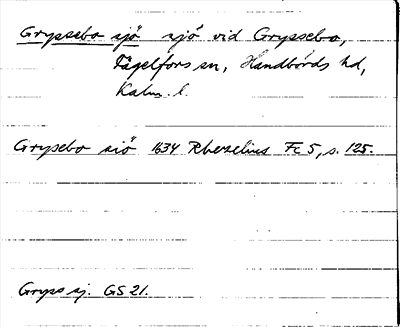 Gryssebo sjö sjö vid Gryssebo,
Fågelfors sn, Handbörds hd,
Kalm. l.
Grysebo siö 1634 Rhezelius Fc 5, s. 125.
Gryps sj. GS 21.